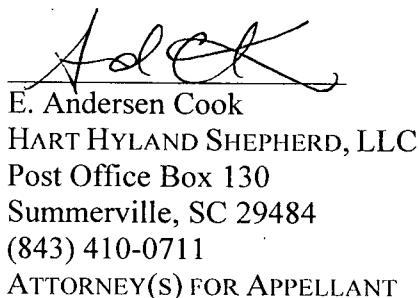 E. Andersen Cook
HART HYLAND SHEPHERD, LLC
Post Office Box 130
Summerville, SC 29484
(843) 410-0711
ATTORNEY(S) FOR APPELLANT